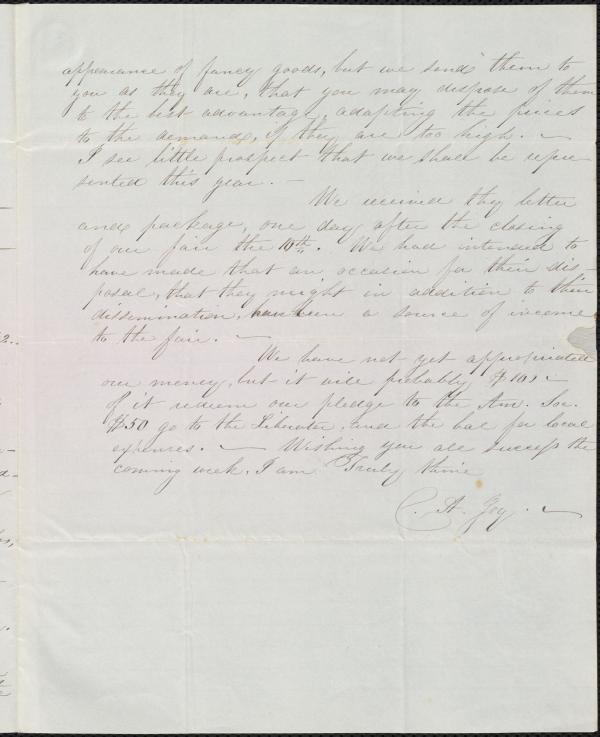 appearance of fancy goods, but we send them to
you as they are, that you may dispose of them
to the best advantage, adapting the prices
to the demands, if they are too high. —
I see little prospect that we shall be repre
sented this year. —
We received thy letter
and package, one day after the closing
of our fair the 10th. We had intended to
have made that an occasion for their dis-
posal, that they might in addition to their
dissemination, have been a source of income
to the fair. —
We have not yet appropriated
our money, but it will probably $100 —
of it redeem our pledge to the Am. Soc.
$50 go to the Liberator, and the bal for local
expenses. — Wishing you all success the
coming week, I am Truly thine
C. A. Joy. —